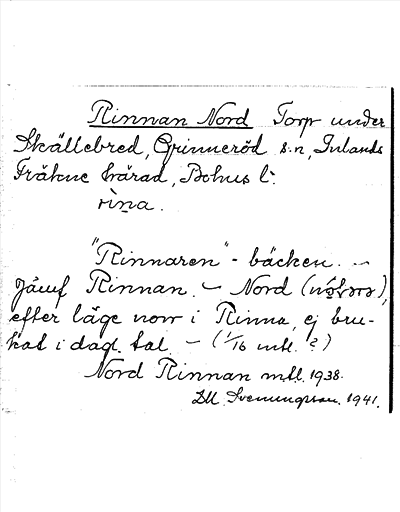 Rinnan Nord Torp under
Skällebred, Grinneröd s:n, Inlands
Fräkne härad, Bohus l:
rìn̥a.
"Rinnaren" - bäcken. -
Jämf Rinnan. - Nord
efter läge norr i Rinna, ej bru-
kat i dagl. tal - (1/16 mtl. ?)
Nord Rinnan mtl. 1938.
Svenungsson. 1941.